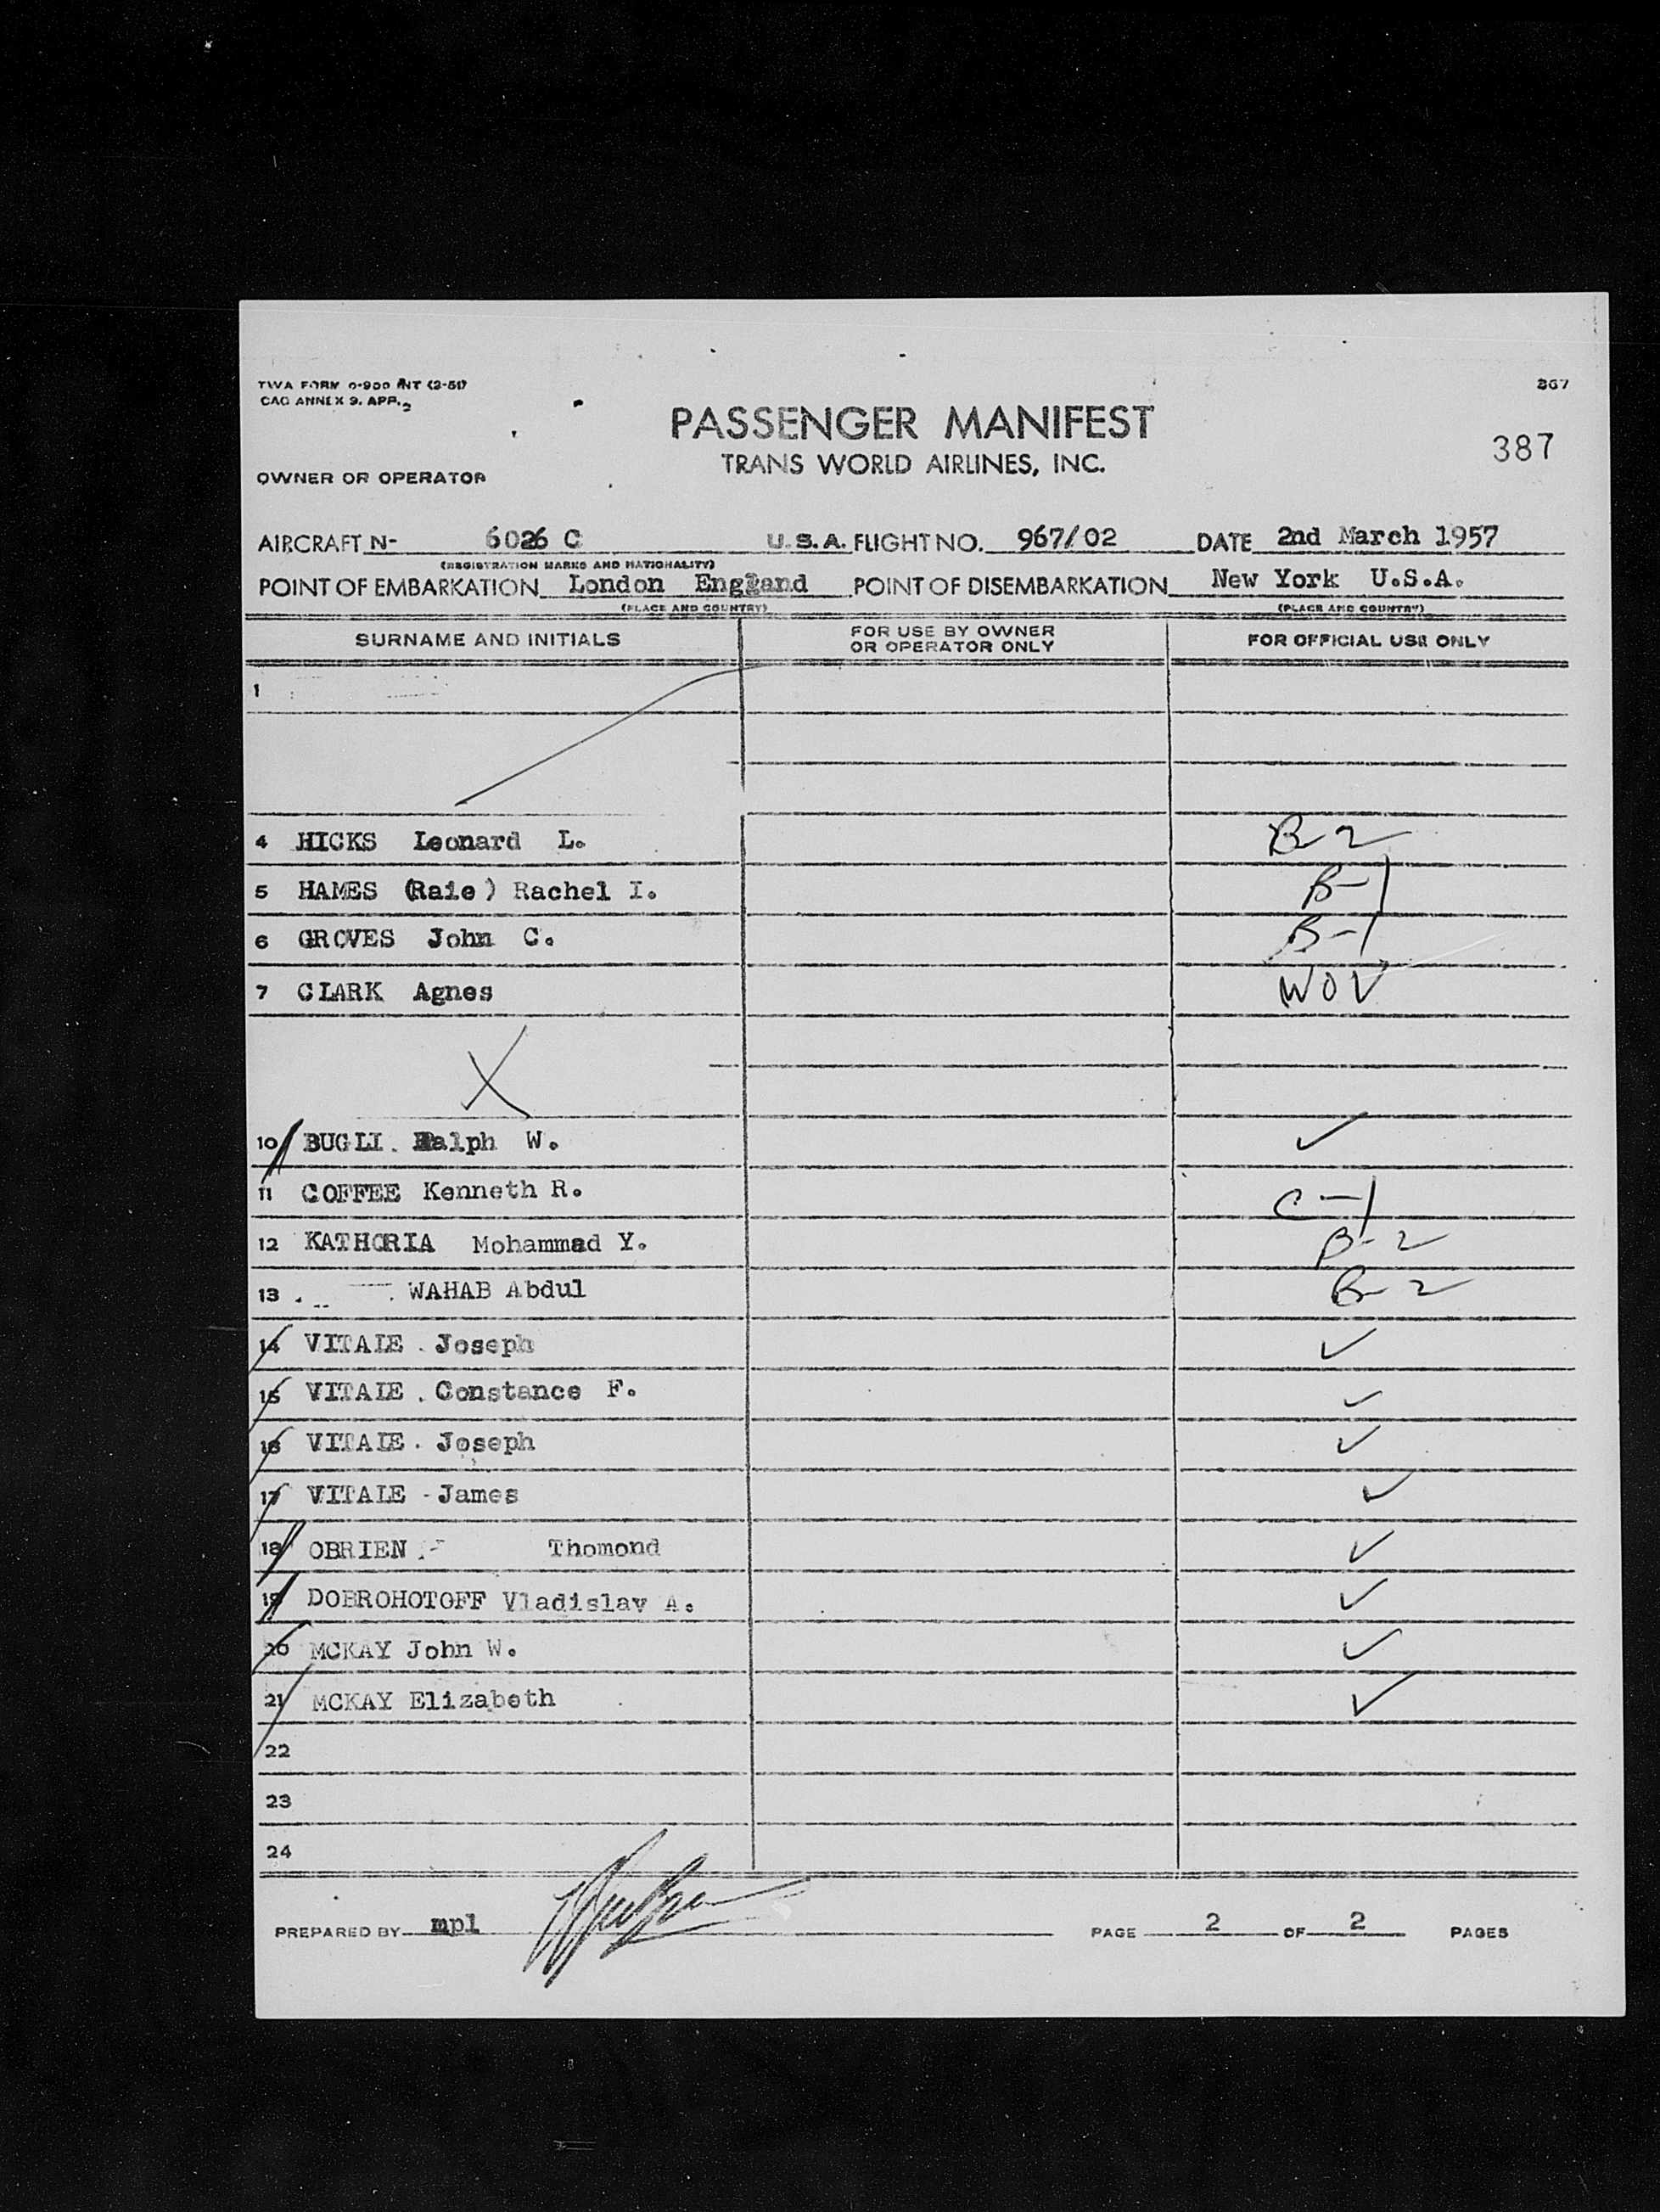 TWA FORM O-900 INT (2-51)
CAO ANNEX 9. APP. 2
367
PASSENGER MANIFEST
387
TRANS WORLD AIRLINES, INC.
OWNER OR OPERATOR
AIRCRAFT N- 6026 C U.S.A. FLIGHT NO. 967/02 DATE 2nd March 1957
(REGISTRATION MARKS AND NATIONALITY)
POINT OF EMBARKATION London England POINT OF DISEMBARKATION New York U.S.A.
(PLACE AND COUNTRY) (PLACE AND COUNTRY)
SURNAME AND INITIALS FOR USE BY OWNER OR OPERATOR ONLY FOR OFFICIAL USE ONLY
1
4 HICKS Leonard L. B-2
5 HAMES (Raie) Rachel I. B-1
6 GROVES John C. B-1
7 CLARK Agnes WOV
X
10 BUGLI. Ralph W. ✓
11 COFFEE Kenneth R. C-1
12 KATHORIA Mohammad Y. B-2
13 WAHAB Abdul B-2
14 VITALE. Joseph ✓
15 VITALE. Constance F. ✓
16 VITALE. Joseph ✓
17 VITALE - James ✓
18 OBRIEN Thomond ✓
19 DOBROHOTOFF Vladislav A. ✓
20 MCKAY John W. ✓
21 MCKAY Elizabeth ✓
22
23
24
PREPARED BY mpl PAGE 2 OF 2 PAGES